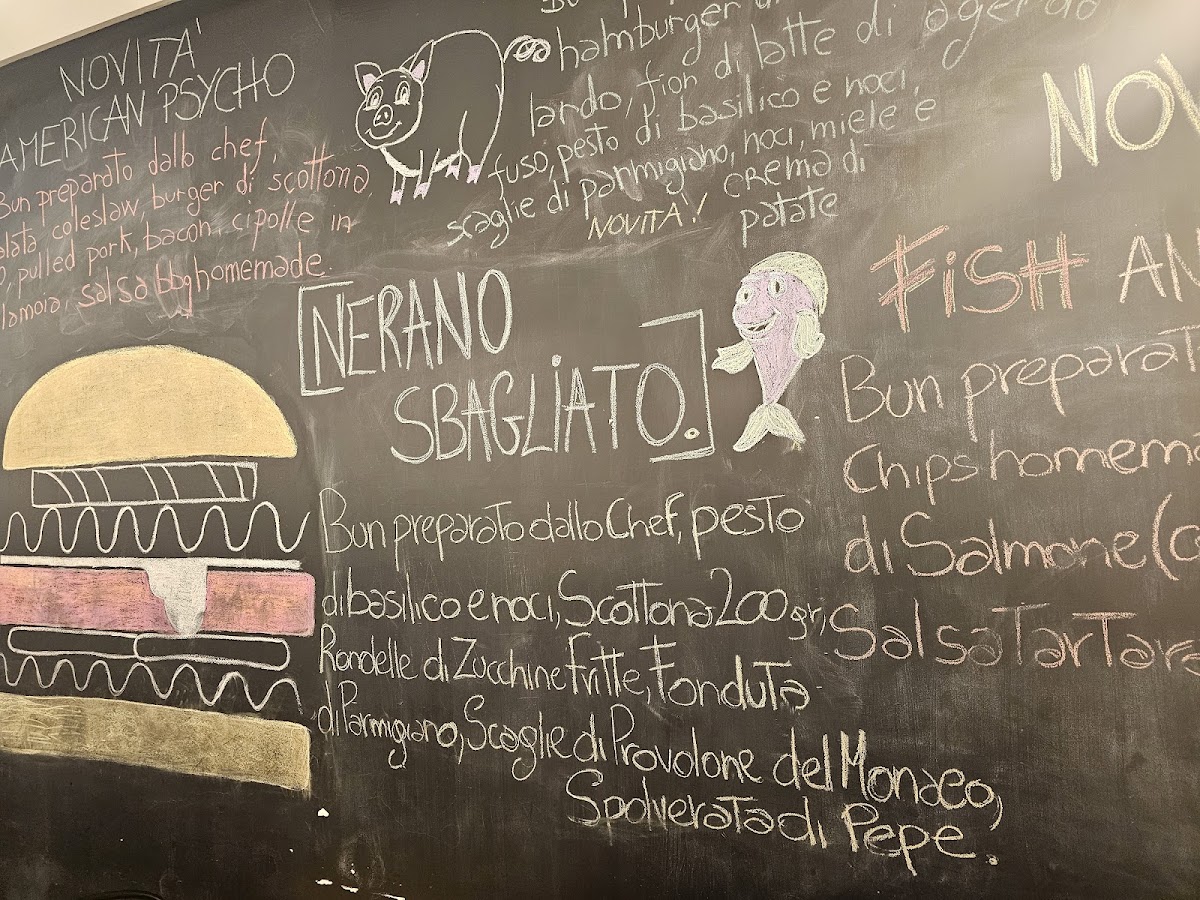 NOVITA'
AMERICAN PSYCHO
Bun preparato dallo chef,
coleslaw, burger di scottona,
pulled pork, bacon, cipolle in
salsa bbq homemade.
hamburger
lardo, fior di latte di agerola
fuso, pesto di basilico e noci,
scaglie di parmigiano, noci, miele e
NOVITA'! crema di
patate
[NERANO
SBAGLIATO.]
Bun preparato dallo Chef, pesto
di basilico e noci, Scottona 200 gr,
Rondelle di Zucchine Fritte, Fonduta
di Parmigiano, Scaglie di Provolone del Monaco,
Spolverata di Pepe.
FiSH
Bun
Chips
di Salmone
Salsa Tartara